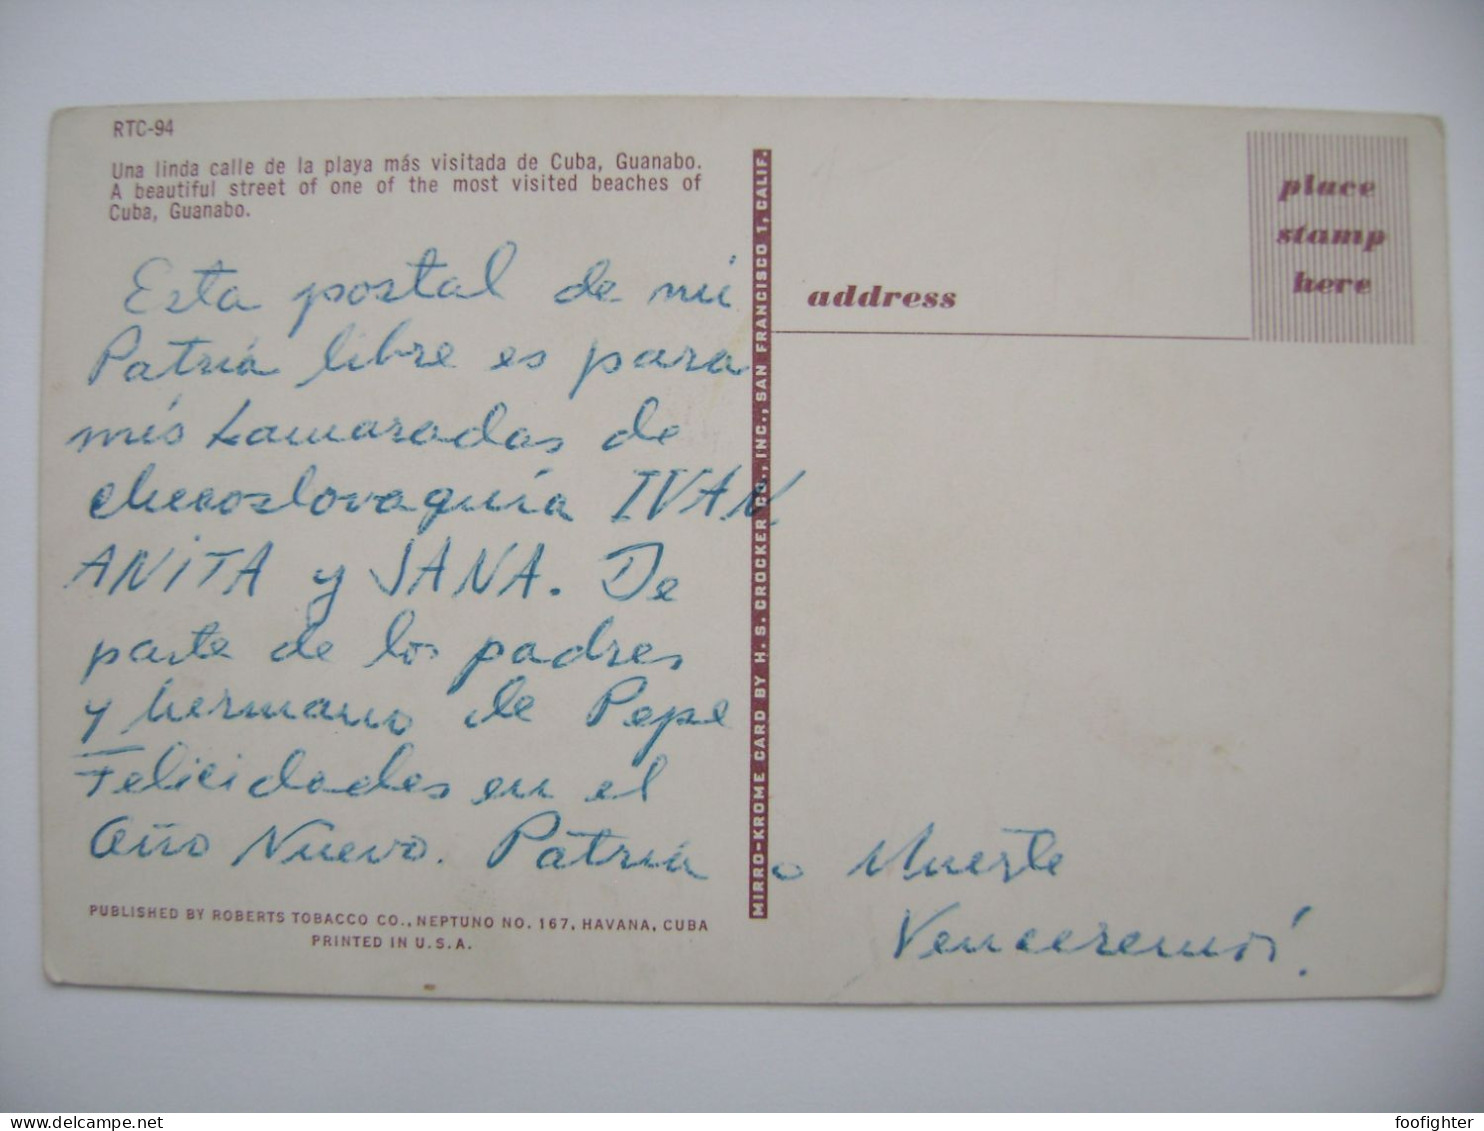 RTC-94
Una linda calle de la playa más visitada de Cuba, Guanabo.
A beautiful street of one of the most visited beaches of
Cuba, Guanabo.
Esta postal de mi
Patria libre es para
mis kamaradas de
checoslovaquia IVAN
ANiTA y JANA. De
parte de los padres
y hermano de Pepe
Felicidades en el
Año Nuevo. Patria o Muerte
Venceremos!
PUBLISHED BY ROBERTS TOBACCO CO., NEPTUNO NO. 167, HAVANA, CUBA
PRINTED IN U.S.A.
MIRRO-KROME CARD BY H. S. CROCKER CO., INC., SAN FRANCISCO 1, CALIF.
address
place
stamp
here
foofighter